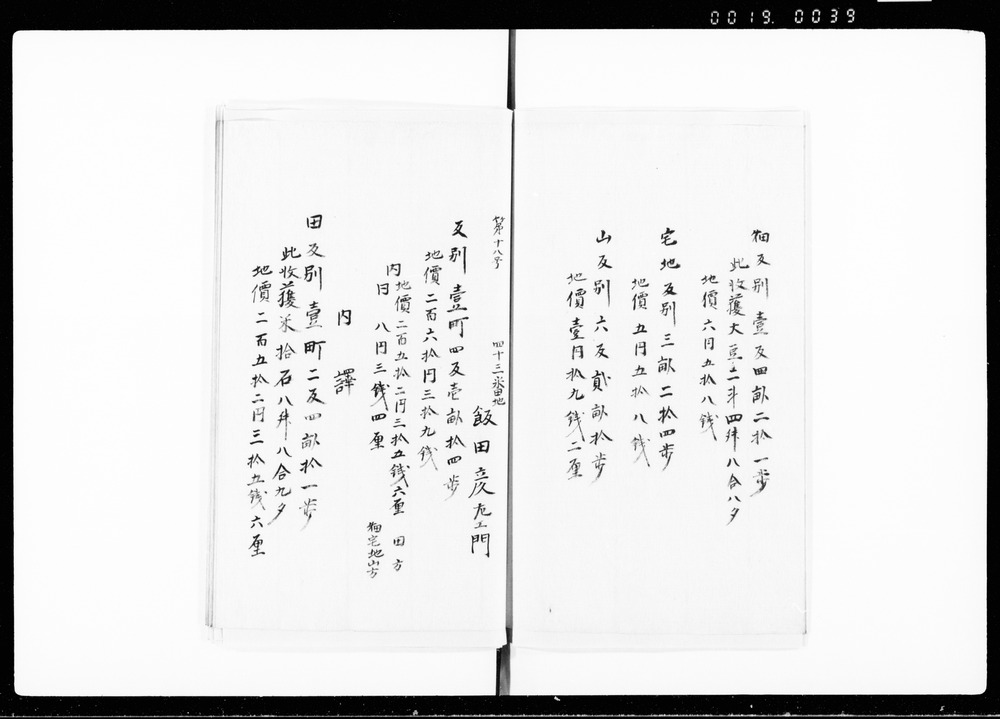 0019 0039
畑反別 壹反四畝二拾一歩
此收獲大豆二斗四舛八合八夕
地價 六円五拾八銭
宅地反別 三畝二拾四歩
地價 五円五拾八銭
山反別 六反貳畝拾歩
地價 壹円拾九銭二厘
第十八号
四十三番地
飯田彦左エ門
反別 壹町四反壱畝拾四歩
地價 二百六拾円三拾九銭
内 地價 二百五拾二円三拾五銭六厘 田方
円 八円三銭四厘 畑宅地山方
内譯
田反別 壹町二反四畝拾一歩
此收獲米拾石八舛八合九夕
地價 二百五拾二円三拾五銭六厘